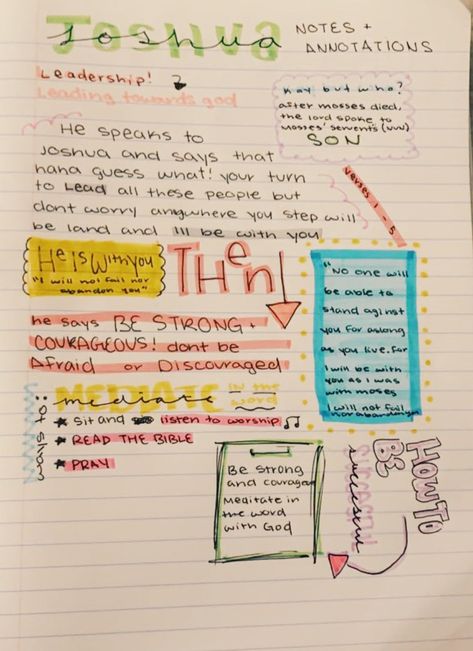 Joshua NOTES +
ANNOTATIONS
Leadership!
Leading towards god
Kay but who?
after mosses died,
the lord spoke to
Mosses' servents (NUN)
SON
He speaks to
Joshua and says that
haha guess what! your turn
to Lead all these people but
dont worry anywhere you step will
be land and Ill be with you
verses 1-5
He Is With you
"I will not fail nor
abandon you"
THen
"No one will
be able to
stand against
you for aslong
as you live. for
I will be with
you as I was
with moses
I will not fail
nor abandon you
he says BE STRONG +
COURAGEOUS! dont be
Afraid or Discouraged
MEDIATE in the
mediate word
ways to:
★ Sit and listen to worship
★ READ THE BIBLE
★ PRAY
Be strong
and courageous
Meditate in
the word
with God
HOW TO
BE
SUCCESSFUL